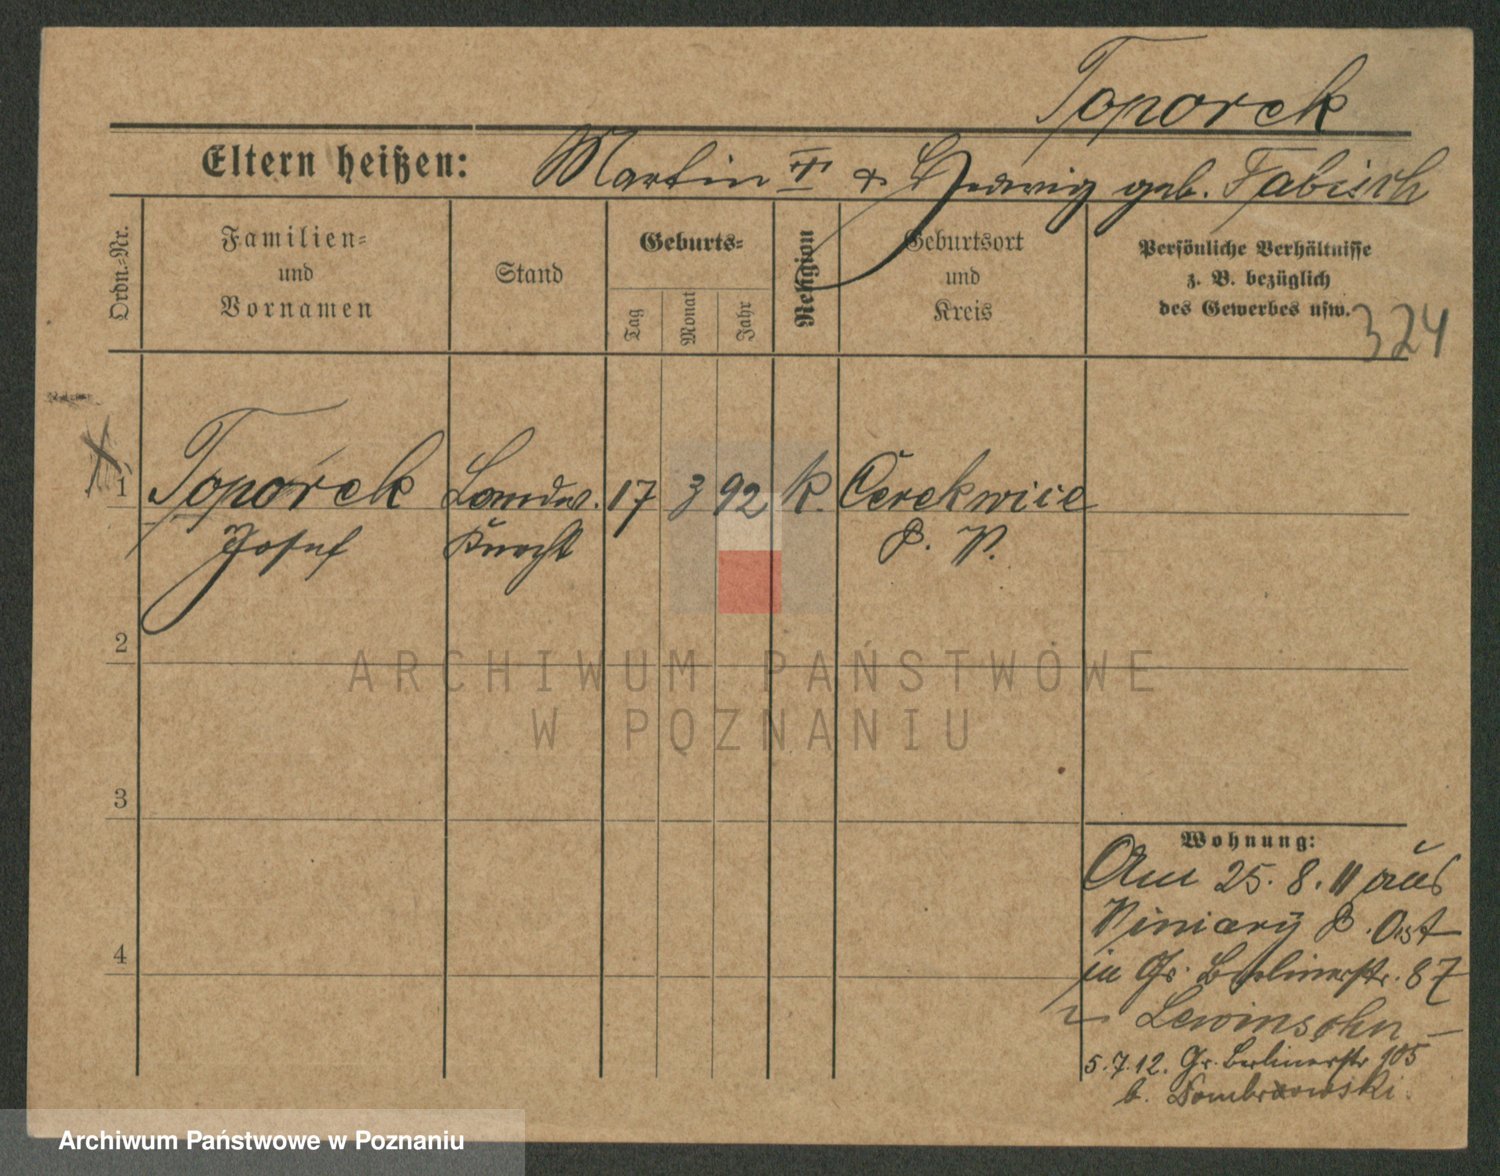 Toporek
Eltern heißen: Martin & Hedwig geb. Fabisch
Ordn.=Nr.
Familien=
und
Vornamen
Stand
Geburts=
Tag
Monat
Jahr
Religion
Geburtsort
und
Kreis
Persönliche Verhältnisse
z. B. bezüglich
des Gewerbes usw.
324
1 Toporek Landw. 17 3 92 k. Cerekwice
Josef Knecht P. W.
2
3
4
Wohnung:
Am 25. 8. 11 aus
Winiary P. Ost
in Gr. Berlinerstr. 87
Lewinsohn –
5.7.12. Gr. Berlinerstr 105
b. Dombrowski.
ARCHIWUM PAŃSTWOWE
W POZNANIU
Archiwum Państwowe w Poznaniu